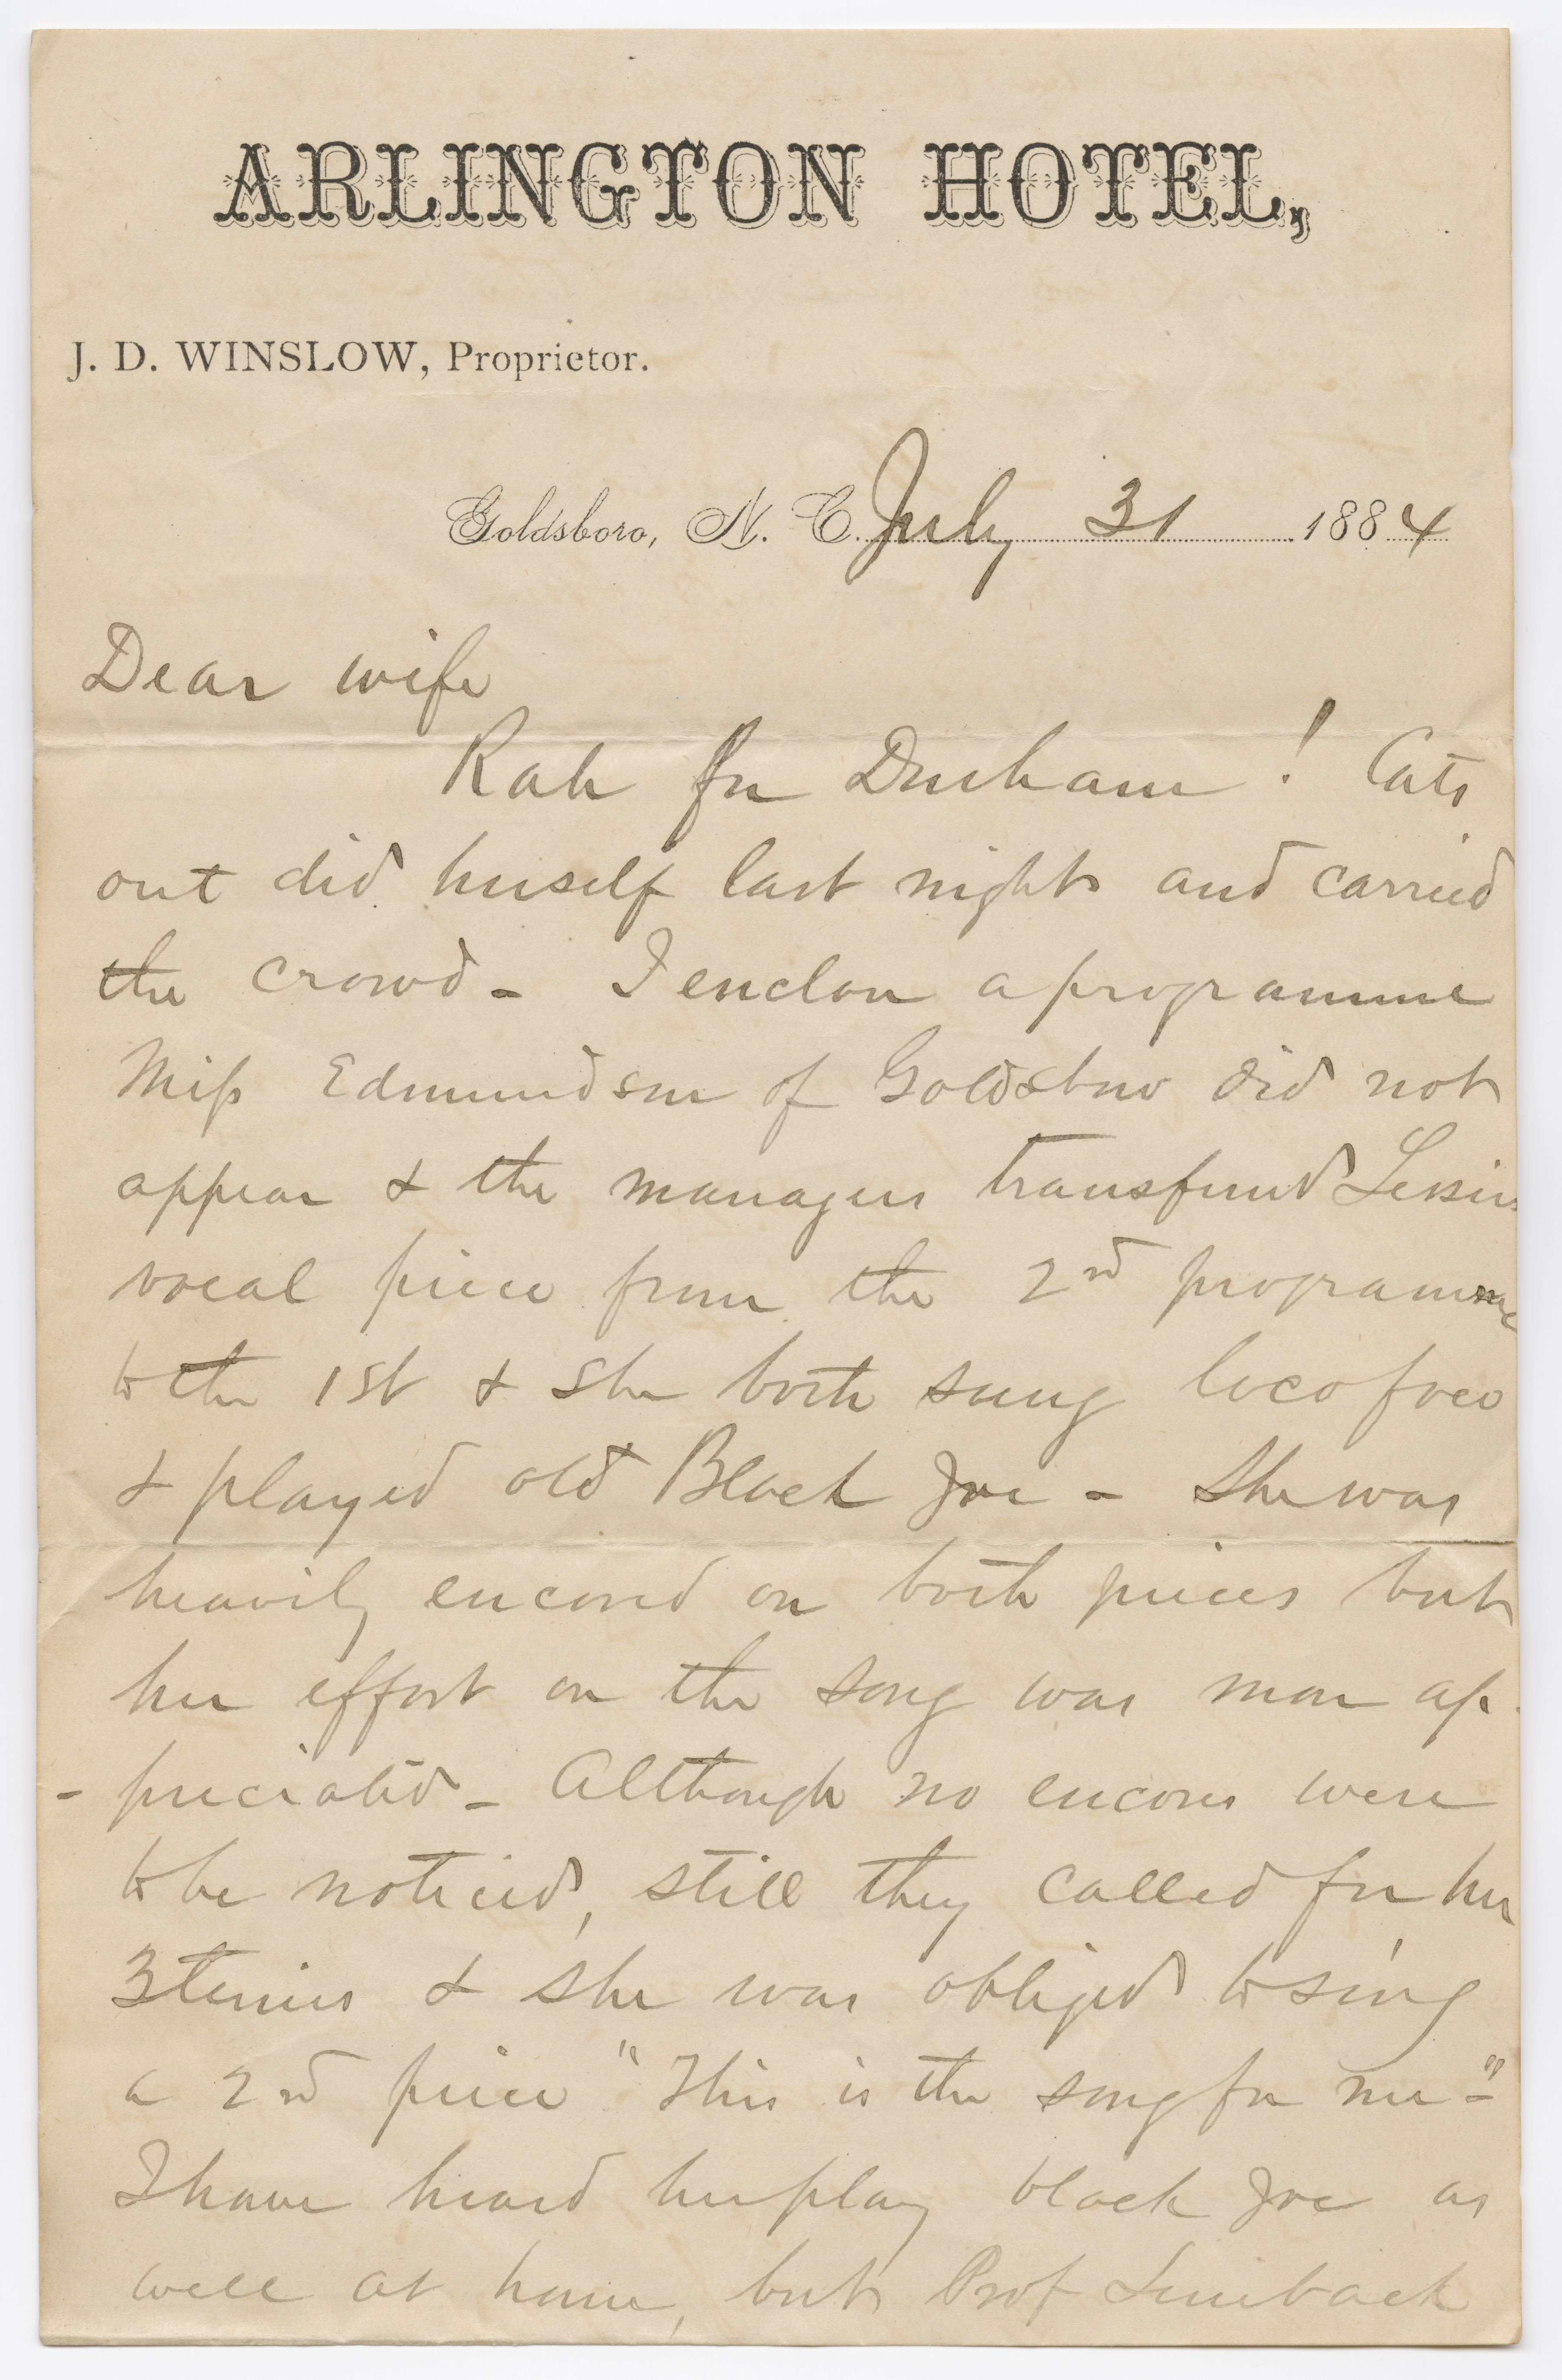 ARLINGTON HOTEL,
J. D. WINSLOW, Proprietor.
Goldsboro, N. C. July 31 1884
Dear wife
Rah for Durham! Cate
out did herself last night and carried
the crowd - I enclose a programme
Miss Edmundson of Goldsboro did not
appear & the managers transferred Lessie
vocal piece from the 2nd programme
to the 1st & she both sung loco foco
& played old Black Joe - She was
heavily encored on both pieces but
her effort on the song was more ap-
-preciated - Although no encores were
to be noticed, still they called for her
3 times & she was obliged to sing
a 2nd piece "This is the song for me" -
I have heard her play black Joe as
well at home, but Prof